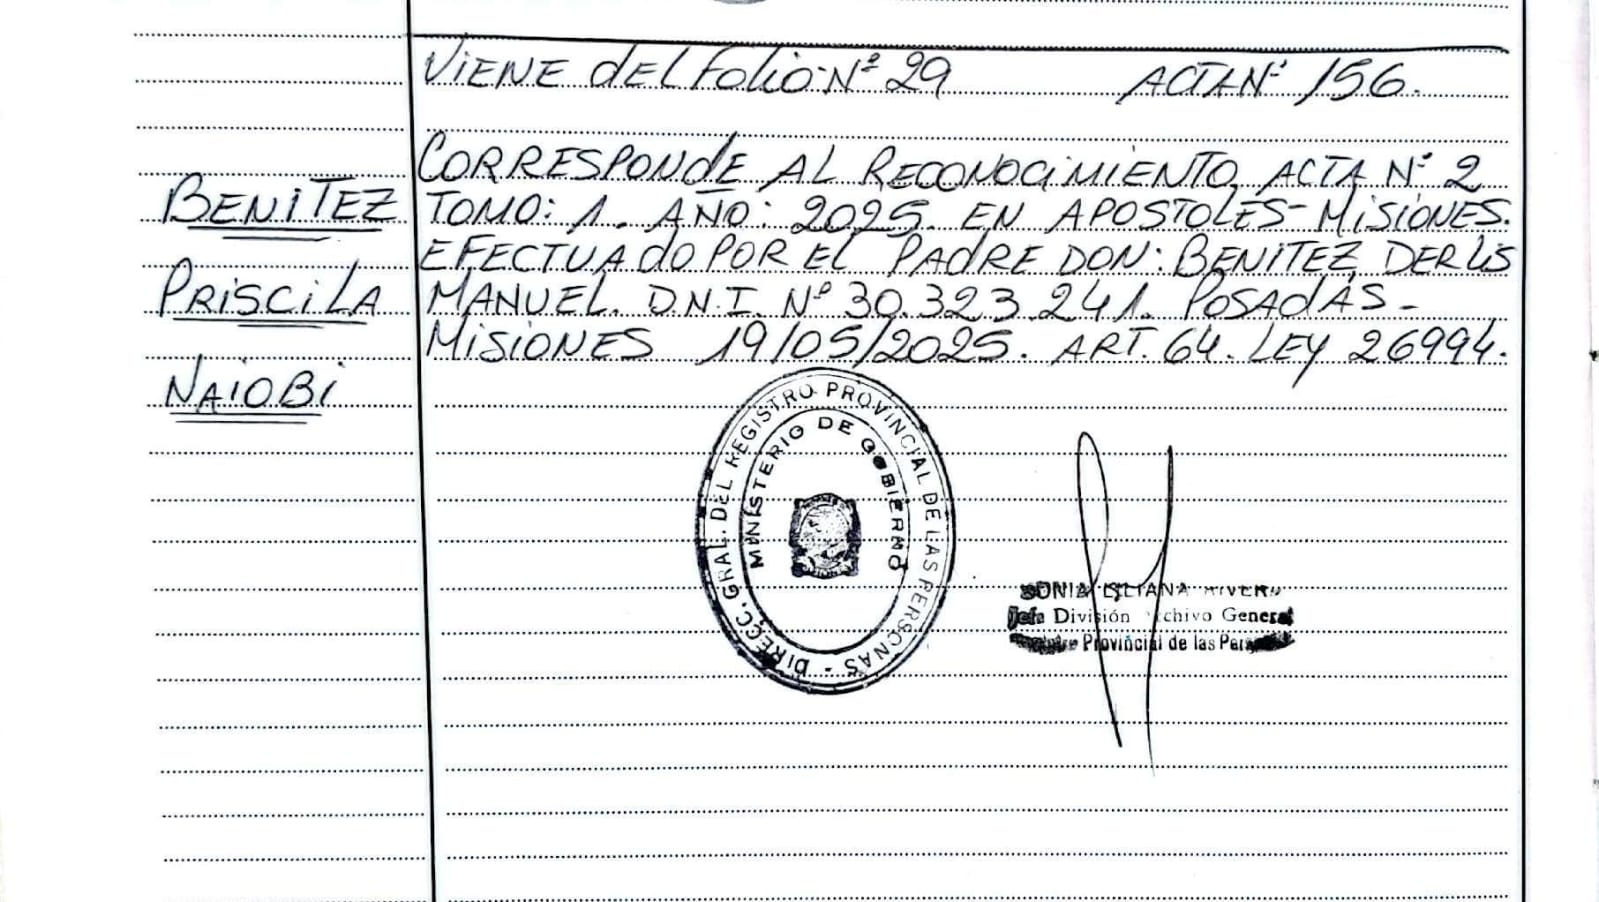 VIENE DEL FOLIO Nº 29 ACTA Nº 156.
CORRESPONDE AL RECONOCIMIENTO, ACTA Nº 2
TOMO: 1. AÑO: 2025. EN APOSTOLES - MISIONES.
EFECTUADO POR EL PADRE DON: BENITEZ, DERLIS
MANUEL. D.N.I. Nº 30.323.241. POSADAS -
MISIONES 19/05/2025. ART. 64. LEY 26994.
BENITEZ
PRISCILA
NAIOBI
DIRECC. GRAL. DEL REGISTRO PROVINCIAL DE LAS PERSONAS -
MINISTERIO DE GOBIERNO
SONIA LILIANA RIVERO
Jefa División Archivo General
Provincial de las Personas